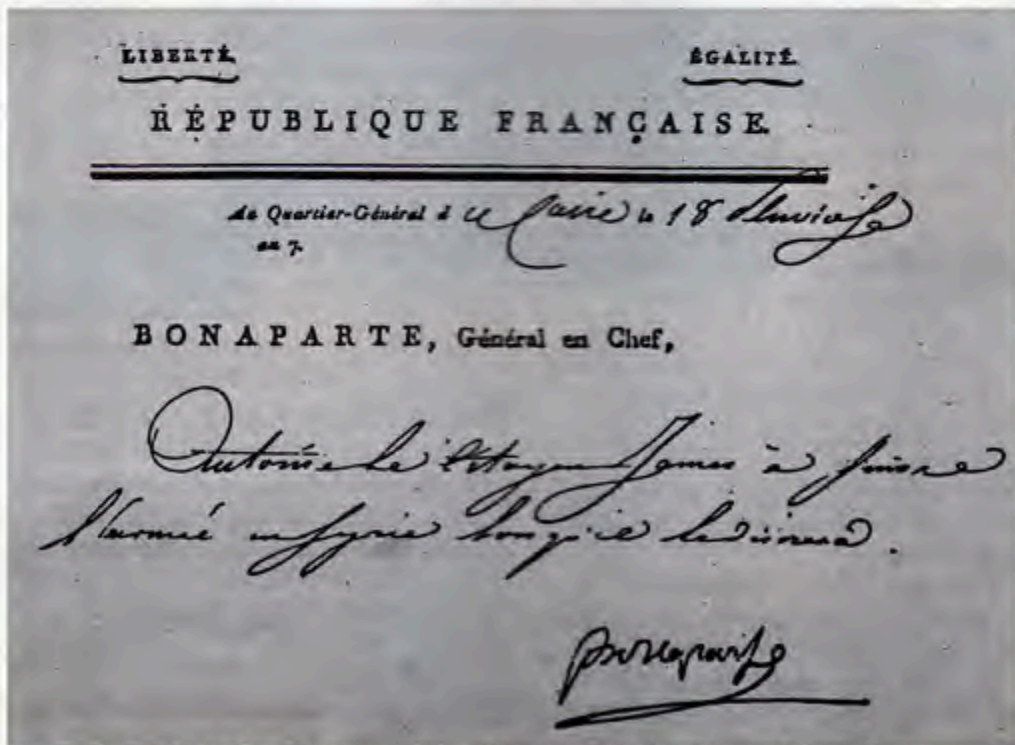 LIBERTÉ. ÉGALITÉ.
RÉPUBLIQUE FRANÇAISE.
Au Quartier-Général à le Caire le 18 Pluviose
an 7.
BONAPARTE, Général en Chef,
Autorise le Citoyen James à suivre
l'armée en Syrie lorsqu'il le désirera.
Bonaparte